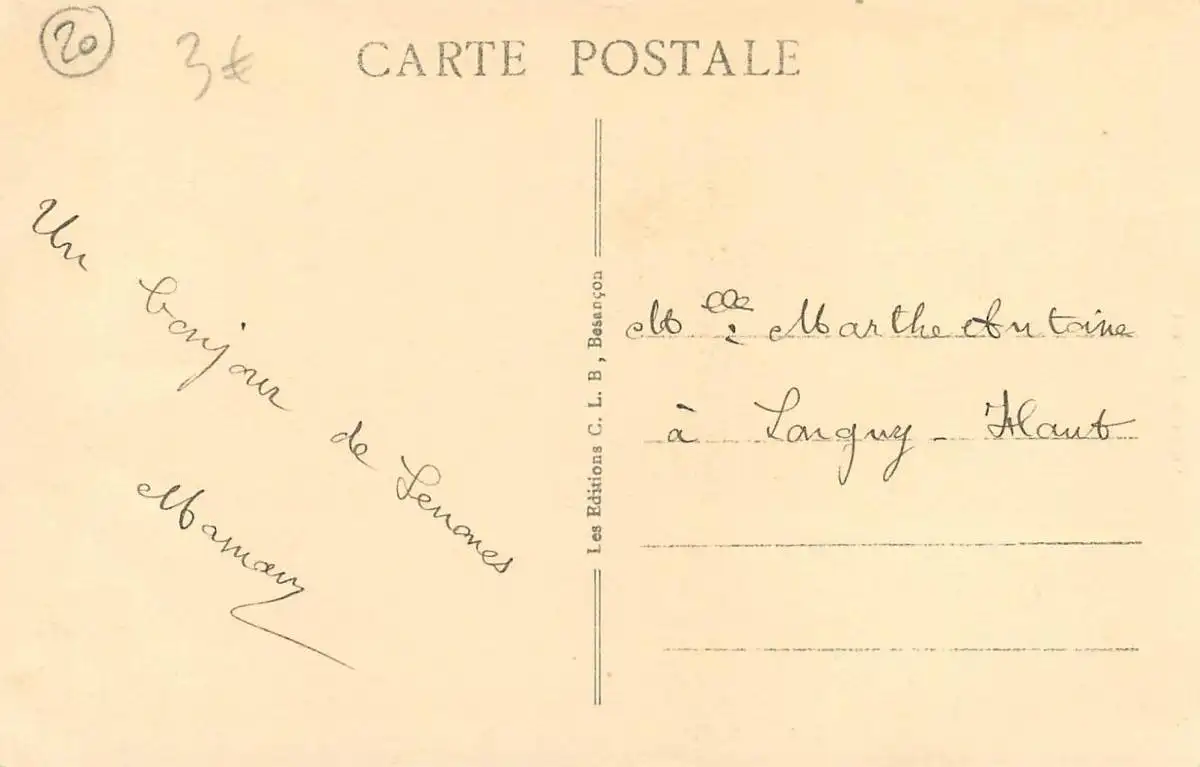 20
3€
CARTE POSTALE
Un bonjour de Senones
Maman
Les Editions C. L. B, Besançon
Mlle Marthe Antoine
à Longwy - Haut